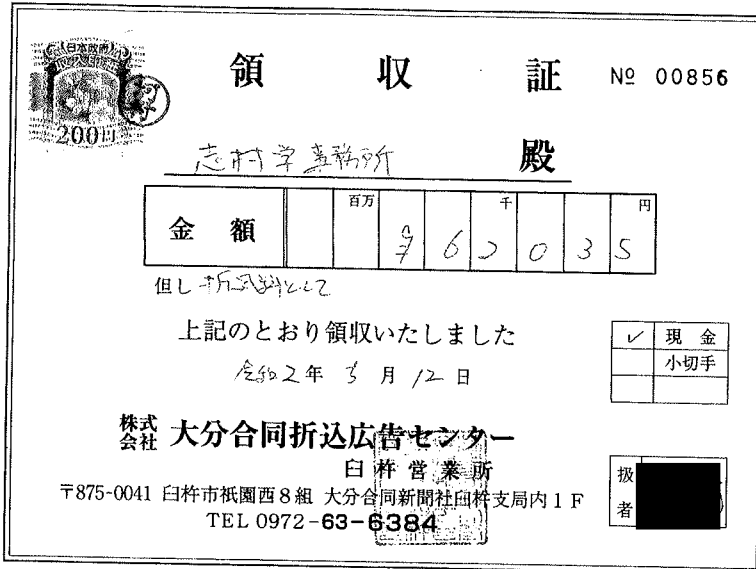 日本政府
収入印紙
200円
領収証 № 00856
志村学事務所 殿
百万 千 円
金額 ¥62035
但し 折込料として
上記のとおり領収いたしました
令和2年3月12日
✓ 現金
小切手
株式会社 大分合同折込広告センター
臼杵営業所
〒875-0041 臼杵市祇園西8組 大分合同新聞社臼杵支局内1F
TEL 0972-63-6384
扱者